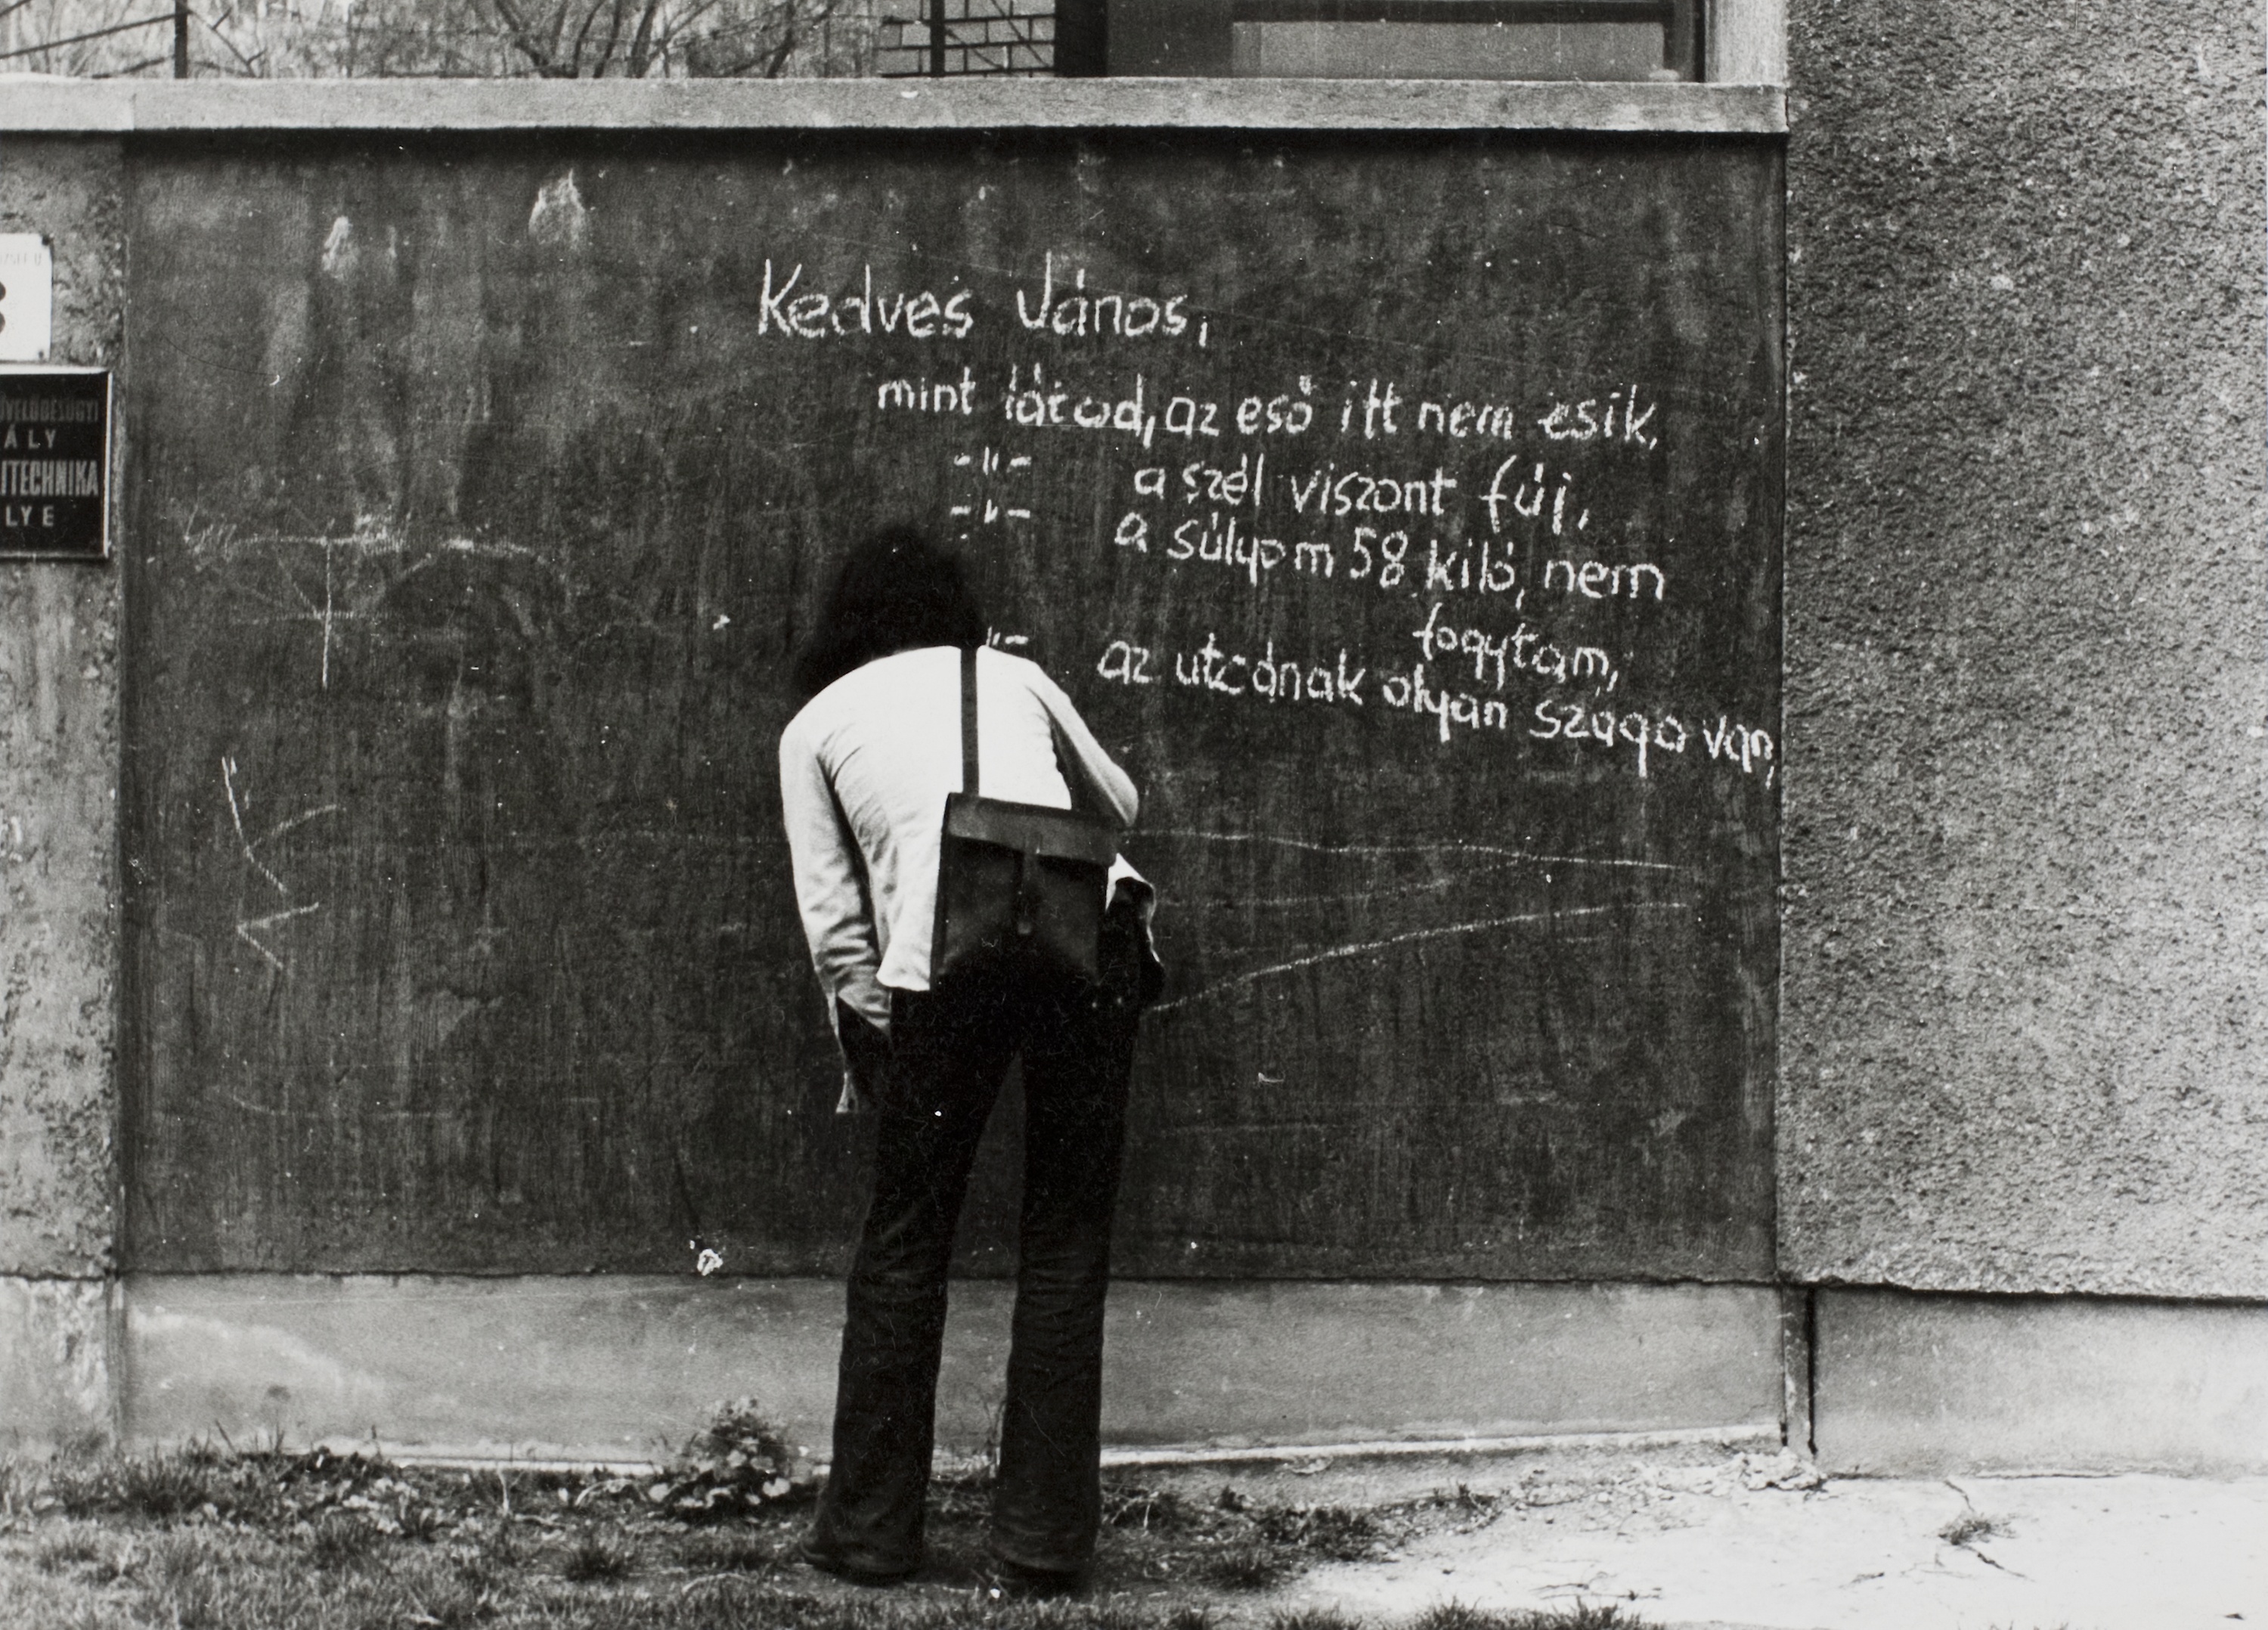 Kedves János,
mint látod, az eső itt nem esik,
-"- a szél viszont fúj,
-"- a súlyom 58 kiló, nem
fogytam,
"- az utcának olyan szaga van,
ÁLY
TECHNIKA
LYE